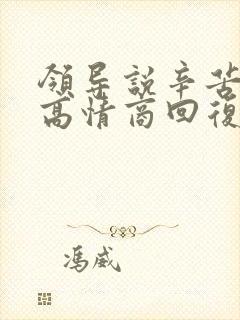 領导説辛苦
高情商回復
馮威